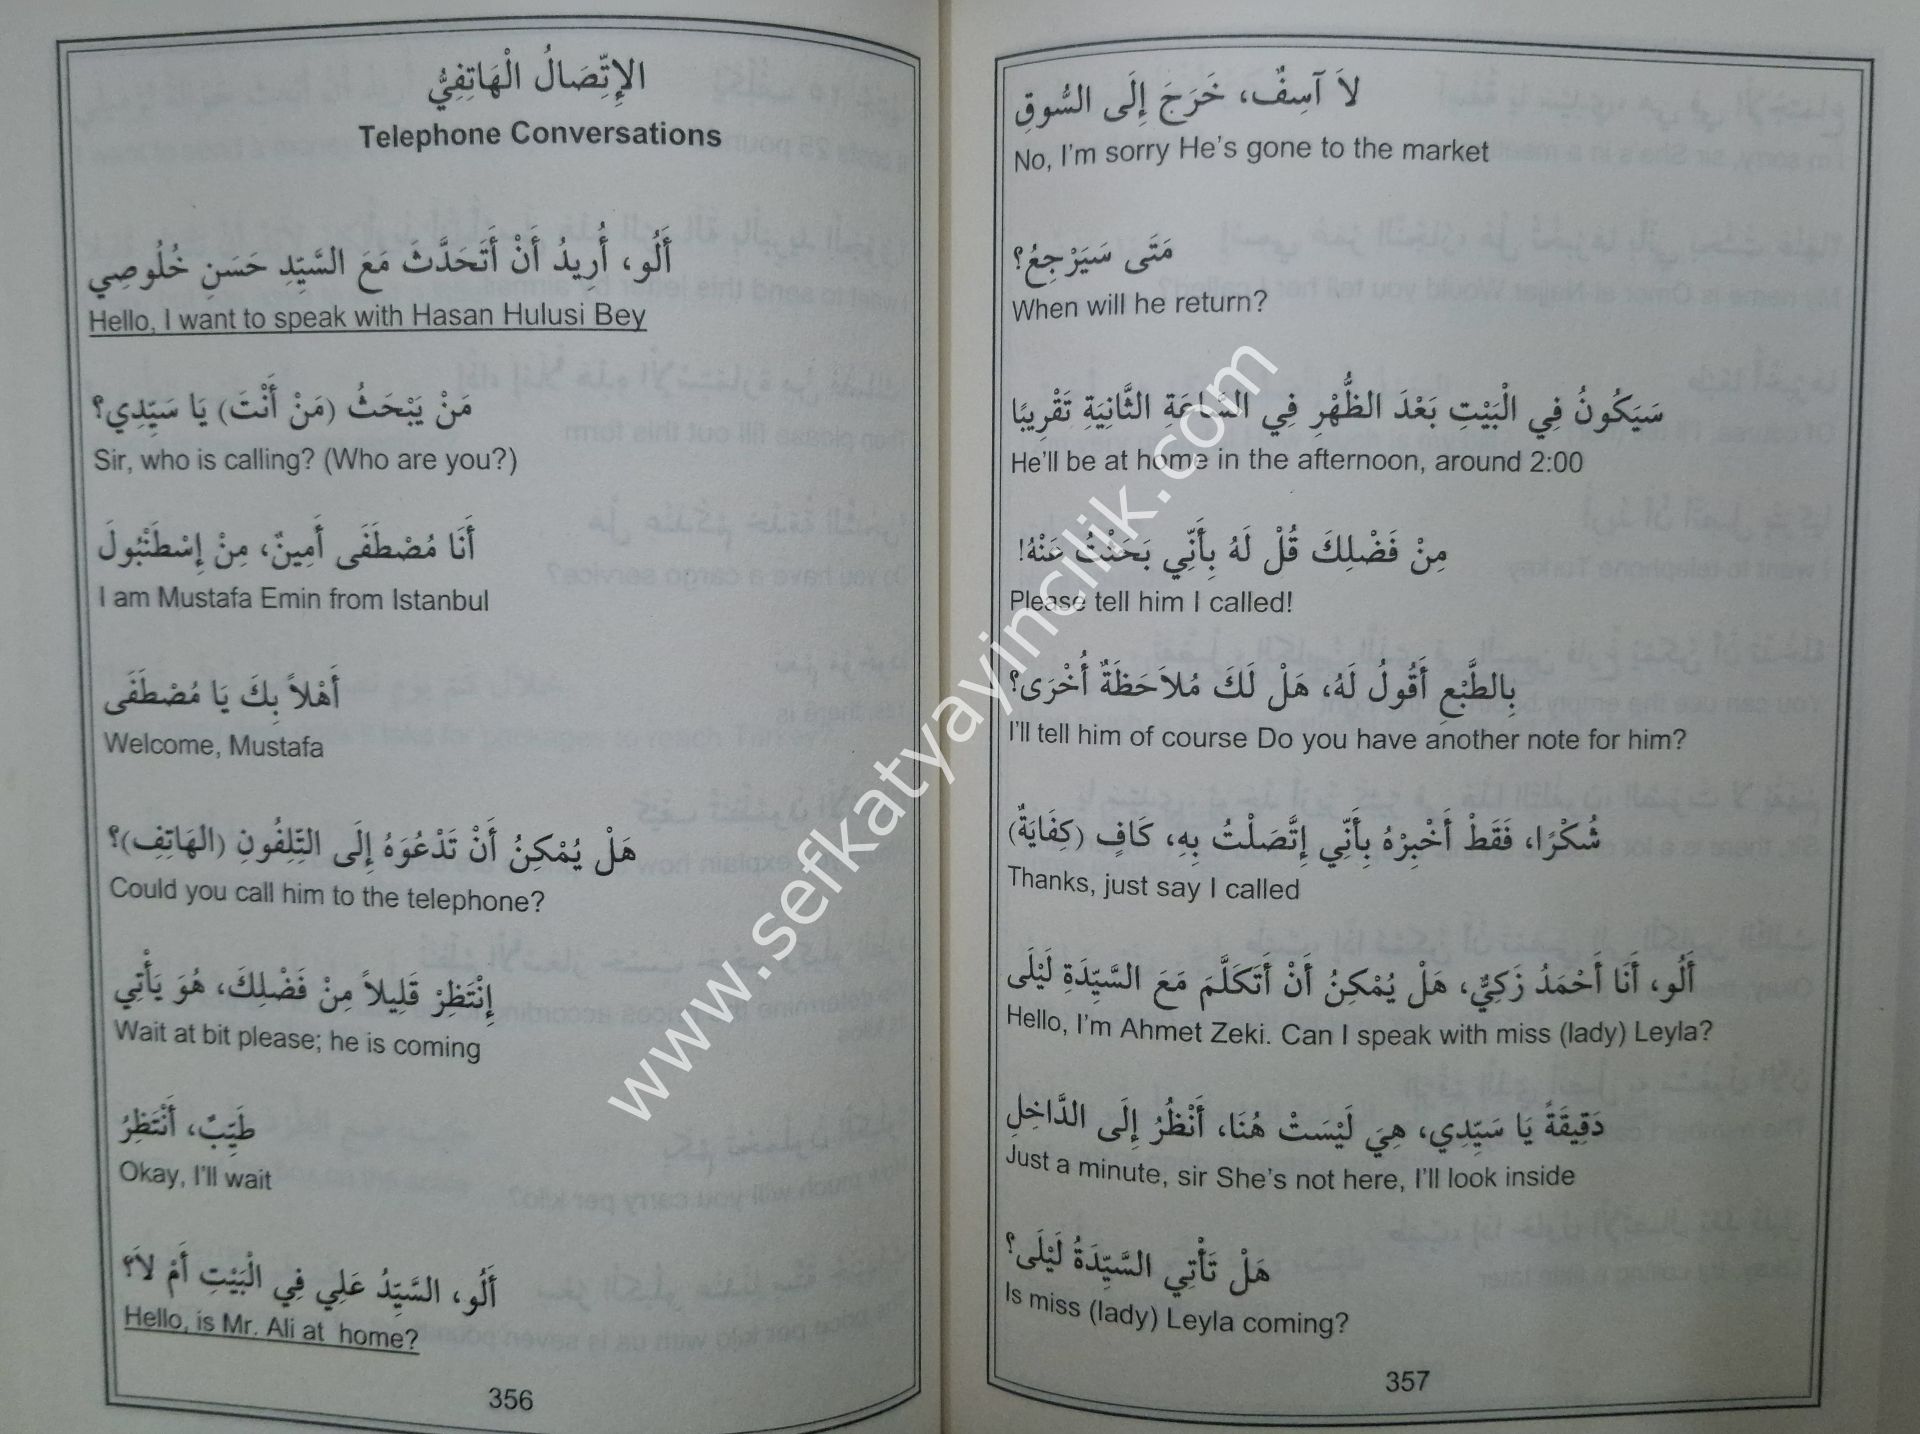 الإِتِّصَالُ الْهَاتِفِيُّ
Telephone Conversations
أَلُو، أُرِيدُ أَنْ أَتَحَدَّثَ مَعَ السَّيِّدِ حَسَنِ خُلُوصِي
Hello, I want to speak with Hasan Hulusi Bey
مَنْ يَبْحَثُ (مَنْ أَنْتَ) يَا سَيِّدِي؟
Sir, who is calling? (Who are you?)
أَنَا مُصْطَفَى أَمِينٌ، مِنْ إِسْطَنْبُولَ
I am Mustafa Emin from Istanbul
أَهْلاً بِكَ يَا مُصْطَفَى
Welcome, Mustafa
هَلْ يُمْكِنُ أَنْ تَدْعُوَهُ إِلَى التِّلِفُونِ (الهَاتِفِ)؟
Could you call him to the telephone?
إِنْتَظِرْ قَلِيلاً مِنْ فَضْلِكَ، هُوَ يَأْتِي
Wait at bit please; he is coming
طَيِّبٌ، أَنْتَظِرُ
Okay, I'll wait
أَلُو، السَّيِّدُ عَلِي فِي الْبَيْتِ أَمْ لاَ؟
Hello, is Mr. Ali at home?
356
لاَ آسِفٌ، خَرَجَ إِلَى السُّوقِ
No, I'm sorry He's gone to the market
مَتَى سَيَرْجِعُ؟
When will he return?
سَيَكُونُ فِي الْبَيْتِ بَعْدَ الظُّهْرِ فِي السَّاعَةِ الثَّانِيَةِ تَقْرِيبًا
He'll be at home in the afternoon, around 2:00
مِنْ فَضْلِكَ قُلْ لَهُ بِأَنِّي بَحَثْتُ عَنْهُ!
Please tell him I called!
بِالطَّبْعِ أَقُولُ لَهُ، هَلْ لَكَ مُلاَحَظَةٌ أُخْرَى؟
I'll tell him of course Do you have another note for him?
شُكْرًا، فَقَطْ أَخْبِرْهُ بِأَنِّي إِتَّصَلْتُ بِهِ، كَافٍ (كِفَايَةٌ)
Thanks, just say I called
أَلُو، أَنَا أَحْمَدُ زَكِيٌّ، هَلْ يُمْكِنُ أَنْ أَتَكَلَّمَ مَعَ السَّيِّدَةِ لَيْلَى
Hello, I'm Ahmet Zeki. Can I speak with miss (lady) Leyla?
دَقِيقَةً يَا سَيِّدِي، هِيَ لَيْسَتْ هُنَا، أَنْظُرُ إِلَى الدَّاخِلِ
Just a minute, sir She's not here, I'll look inside
هَلْ تَأْتِي السَّيِّدَةُ لَيْلَى؟
Is miss (lady) Leyla coming?
357
www.sefkatyayincilik.com